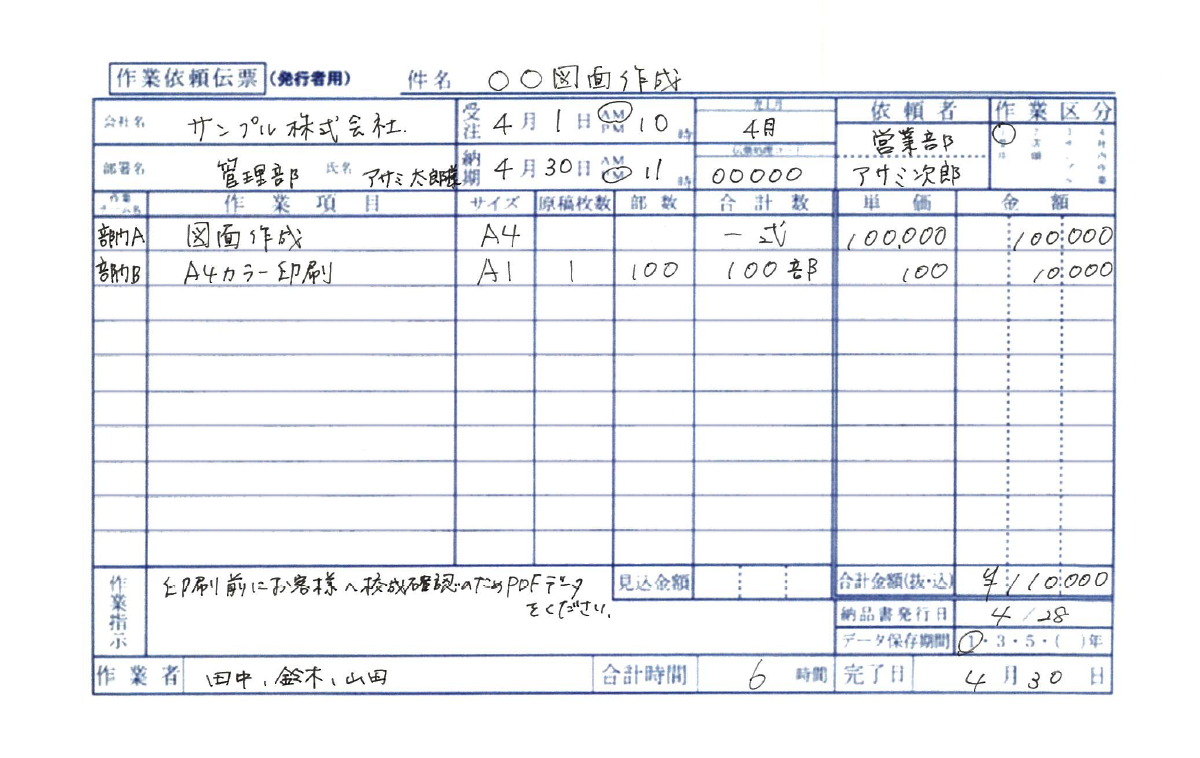 作業依頼伝票 (発行者用) 件名 〇〇図面作成
会社名 サンプル株式会社. 受注 4月1日 AM PM 10時 売上月 4月 依頼者 営業部 作業区分
部署名 管理部 氏名 アサミ太郎様 納期 4月30日 AM PM 11時 伝票処理コード 00000 アサミ次郎
作業チーム名 作業項目 サイズ 原稿枚数 部数 合計数 単価 金額
部門A 図面作成 A4 一式 100,000 100,000
部門B A4カラー印刷 A1 1 100 100部 100 10,000
作業指示 印刷前にお客様へ校成確認のためPDFデータ 見込金額 合計金額(抜・込) ¥110,000
をください。 納品書発行日 4/28
データ保存期間 1・3・5・( )年
作業者 田中、鈴木、山田 合計時間 6 時間 完了日 4月30日